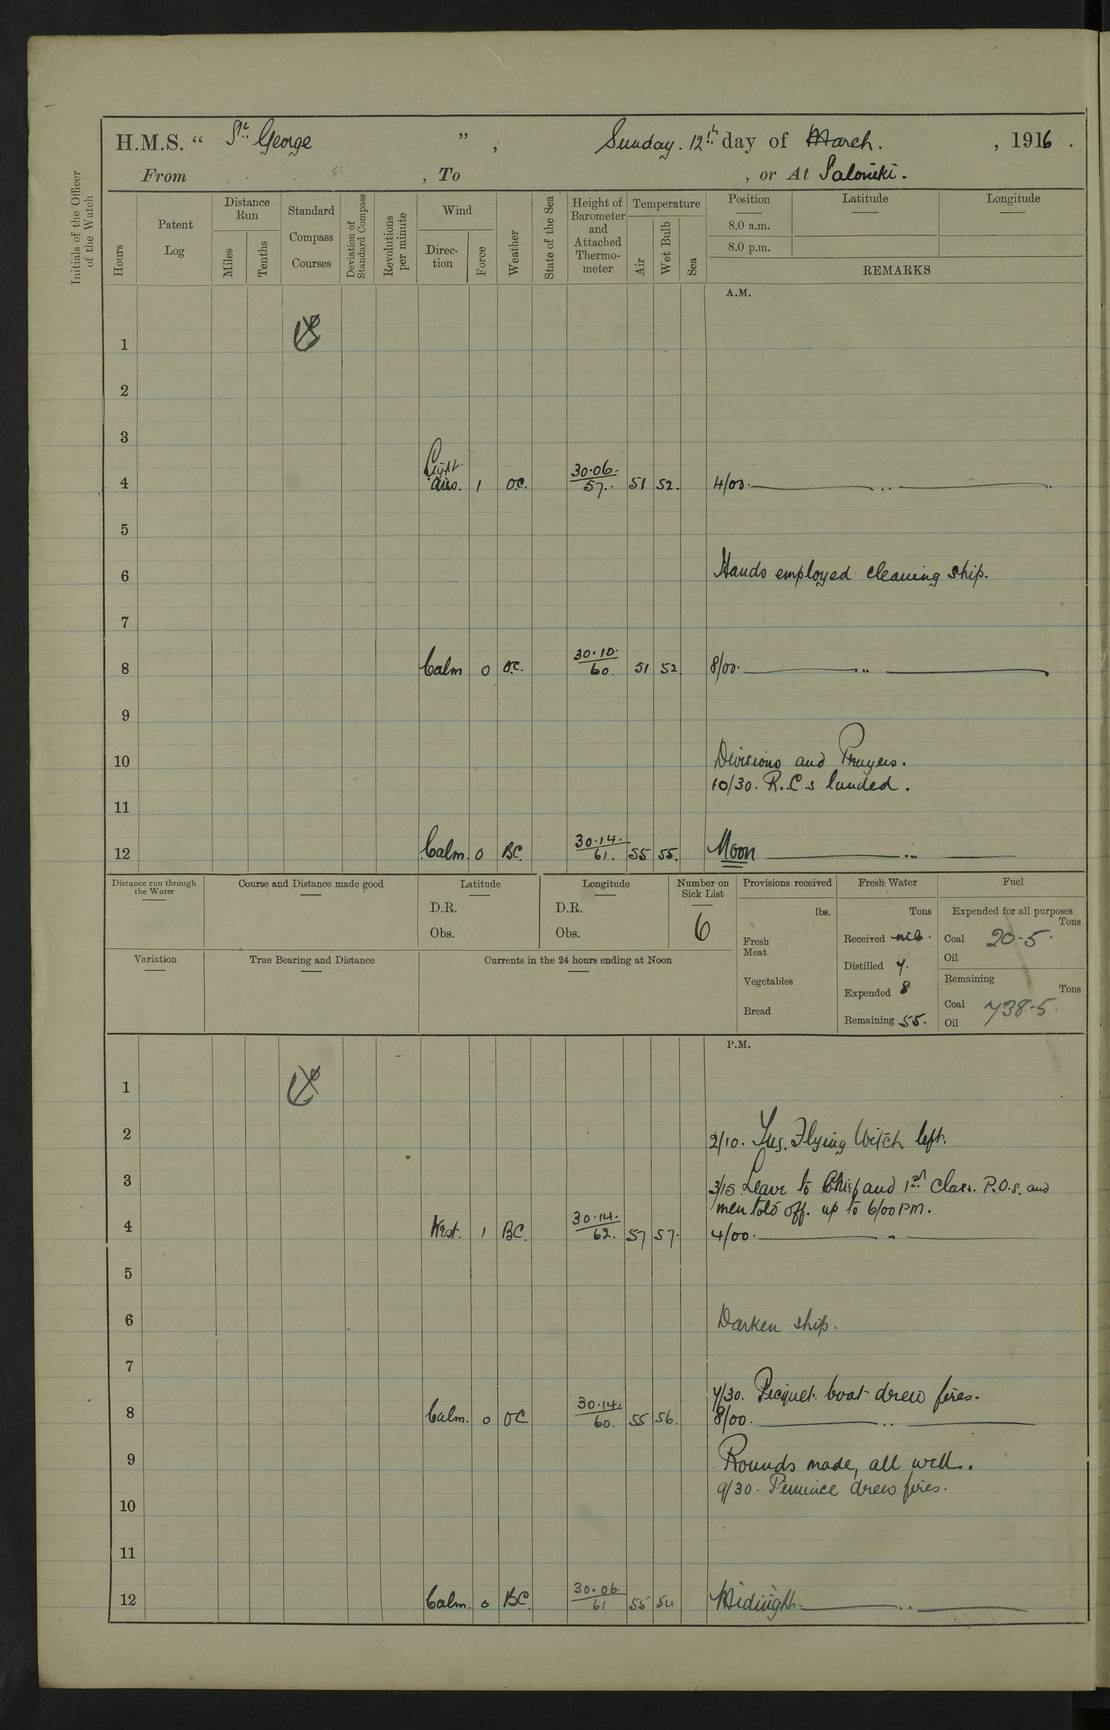 H.M.S. “ St. George ” , Sunday. 12th day of March. , 1916 .
From , To , or At Salonika.
Initials of the Officer of the Watch
Hours
Patent Log
Distance Run
Miles
Tenths
Standard Compass Courses
Deviation of Standard Compass
Revolutions per minute
Wind
Direction
Force
Weather
State of the Sea
Height of Barometer and Attached Thermometer
Temperature
Air
Wet Bulb
Sea
Position
8.0 a.m.
8.0 p.m.
Latitude
Longitude
REMARKS
A.M.
1
2
3
4 Light airs. 1 O.C. 30.06. 57. 51 52. 4/00. ——— „ ———
5
6 Hands employed cleaning ship.
7
8 Calm 0 O.C. 30.10. 60. 51 52 8/00. ——— „ ———
9
10 Divisions and Prayers.
10/30. R.C.s landed.
11
12 Calm. 0 BC. 30.14. 61. 55 55. Noon ——— „ ———
Distance run through the Water
Course and Distance made good
Latitude
D.R.
Obs.
Longitude
D.R.
Obs.
Number on Sick List
6
Provisions received
lbs.
Fresh Meat
Vegetables
Bread
Fresh Water
Tons
Received nil.
Distilled 7.
Expended 8
Remaining 55.
Fuel
Expended for all purposes
Tons
Coal 20.5.
Oil
Remaining
Tons
Coal 738.5.
Oil
Variation
True Bearing and Distance
Currents in the 24 hours ending at Noon
P.M.
1
2 2/10. Tug. Flying Witch left.
3 3/15 Leave to Chief and 1st Class. P.O.s. and
men told off. up to 6/00 PM.
4 West. 1 BC. 30.14. 62. 57 57. 4/00. ——— „ ———
5
6 Darken ship.
7
7/30. Picquet boat drew fires.
8 Calm. 0 OC 30.14. 60. 55 56. 8/00. ——— „ ———
9 Rounds made, all well.
9/30. Pinnace drew fires.
10
11
12 Calm. 0 BC. 30.06. 61 55 54 Midnight. ——— „ ———